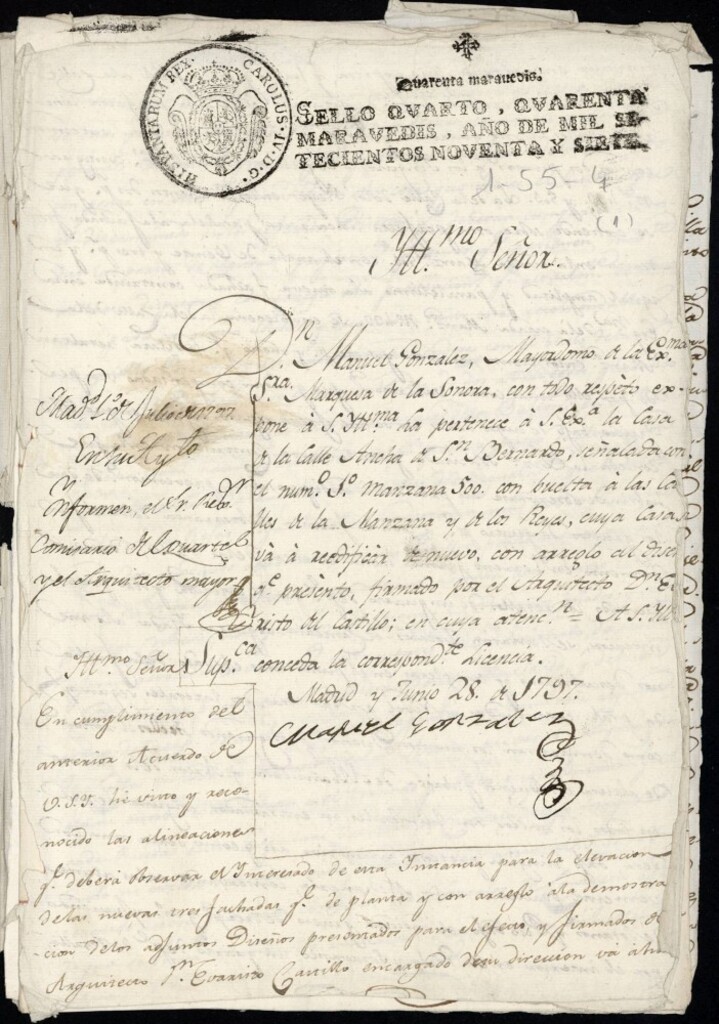 HISPANIARUM REX. CAROLUS. IV. D. G.
Quarenta maravedis.
SELLO QVARTO, QVARENTA
MARAVEDIS, AÑO DE MIL SE-
TECIENTOS NOVENTA Y SIETE.
1-55-4
(1)
Yll.mo Señor.
Dn
D. Manuel Gonzalez, Mayordomo de la Ex.ma
S.ra Marquesa de la Sonora, con todo respeto ex-
pone à S. Yll.ma La pertenece à S. Ex.a la Casa
de la Calle Ancha de S.n Bernardo, señalada con
el num.o 1.o Manzana 500. con buelta à las Ca
lles de la Manzana y de los Reyes, cuya Casa se
và à reedificar de nuevo, con arreglo al diseño
q.e presento, firmado por el Arquitecto D.n E-
risto del Castillo; en cuya atenc.n = A S. Yll
Sup.ca conceda la correspond.te Licencia.
Madrid y Junio 28. de 1797.
Manuel Gonzalez
Mad.d 1.o de Julio de 1797.
En su Ay.to
Ynformen, el Sr. Reg.r
Comisario del Quartel
y el Arquitecto mayor
Yll.mo Señor
En cumplimiento del
anterior Acuerdo de
V.S.Y. he visto y reco-
nocido las alineaciones
q.e deberá observar el Interesado de esta Instancia para la elevacion
de las nuevas tres fachadas q.e de planta y con arreglo ala demostra
cion de los adjuntos Diseños presentados para el efecto y firmados del
Arquitecto D.n Evaristo Castillo encargado de su direccion vá à